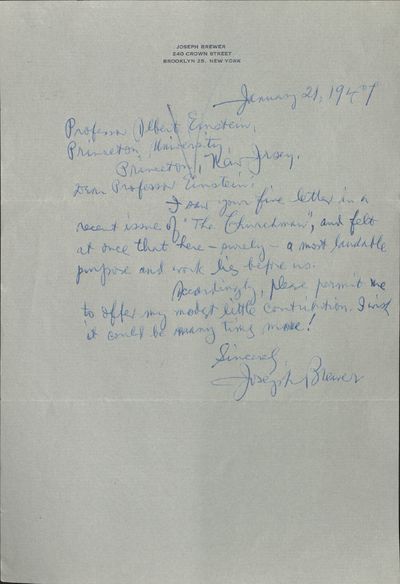 JOSEPH BREWER
240 CROWN STREET
BROOKLYN 25, NEW YORK
January 21, 1947
Professor Albert Einstein,
Princeton University,
Princeton, New Jersey.
Dear Professor Einstein:
I saw your fine letter in a
recent issue of "The Churchman", and felt
at once that here – surely – a most laudable
purpose and work lies before us.
Accordingly, please permit me
to offer my modest little contribution. I wish
it could be many times more!
Sincerely,
Joseph Brewer